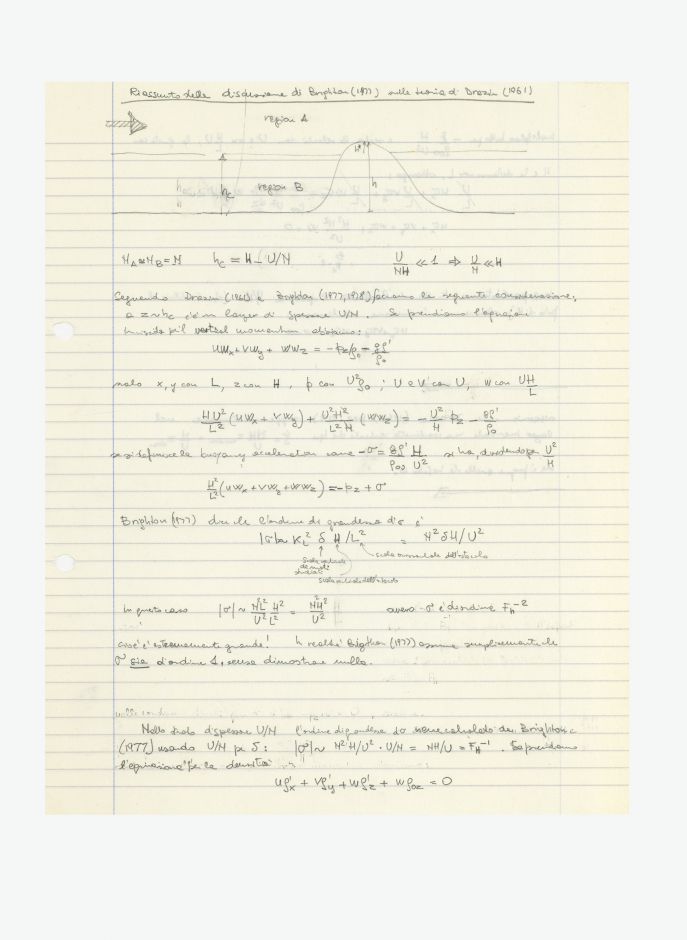 Riassunto della discussione di Brighton (1977) sulla teoria di Drazin (1961)
region A
A
region B
h_c
h
N_A ≈ N_B = N h_c = H - U/N U/NH << 1 ⇒ U/N << H
Seguendo Drazin (1961) e Brighton (1977, 1978) facciamo la seguente considerazione,
a z ~ h_c c'è un layer di spessore U/N. Se prendiamo l'equazione
p il vertical momentum abbiamo:
uw_x + vw_y + ww_z = -p_z/ρ_0 - gρ'/ρ_0
x, y con L, z con H, p con U²ρ_0 ; U e V con U, w con UH/L
HU²/L² (uw_x + vw_y) + U²H²/L²H (ww_z) = - U²/H p_z - gρ'/ρ_0
se si definisce la buoyancy acceleration come -σ = gρ'/ρ_00 H/U² si ha, dividendo per U²/H
H²/L² (uw_x + vw_y + ww_z) = -p_z + σ
Brighton (1977) dice che l'ordine di grandezza di σ è
|σ| ~ K_L² δ H/L² = N²δH/U²
scala orizzontale dell'ostacolo
scala verticale
scala verticale dell'ostacolo
In questo caso |σ| ~ N²L²/U² H²/L² = N²H²/U² ovvero σ è di ordine F_h^-2
cioè è estremamente grande! In realtà Brighton (1977) assume semplicemente che
σ sia d'ordine 1, senza dimostrare nulla.
Nello strato di spessore U/N l'ordine di grandezza di σ viene calcolato da Brighton
(1977) usando U/N per δ: |σ| ~ N²H/U² · U/N = NH/U = F_H^-1. Se prendiamo
l'equazione per la densità
uρ'_x + vρ'_y + wρ'_z + wρ_0z = 0